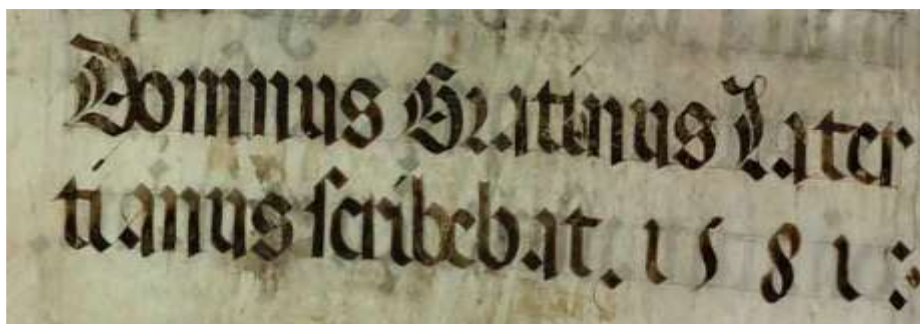 Domnus Gratinus Later
tianus scribebat. 1581: